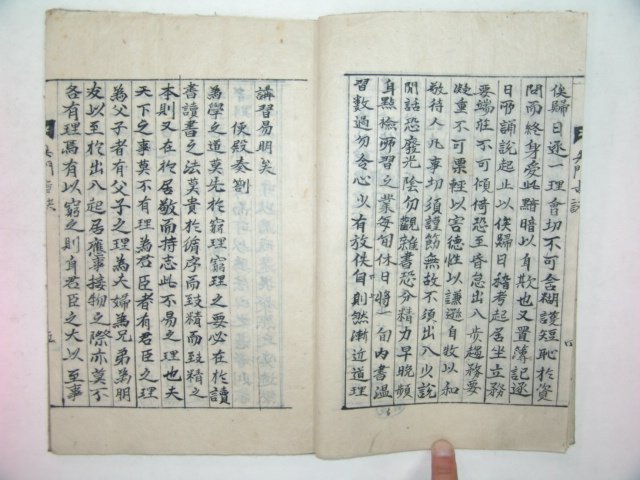 俟歸日逐一理會切不可含糊護短恥於資
問而終身受此黯暗以自欺也又置簿記逐
日所誦說起止以俟歸日稽考起居坐立務
要端莊不可傾倚恐至昏怠出入步趨務要
凝重不可票輕以害德性以謙遜自牧以和
敬待人凡事切須謹飭無故不須出入少說
閒話恐廢光陰勿觀雜書恐分精力早晚頻
自點檢所習之業每旬休日將一旬內書溫
習數過勿令心少有放佚自則然漸近道理
講習易明矣
便殿奏劄
為學之道莫先於窮理窮理之要必在於讀
書讀書之法莫貴於循序而致精而致精之
本則又在於居敬而持志此不易之理也夫
天下之事莫不有理為君臣者有君臣之理
為父子者有父子之理為夫婦為兄弟為朋
友以至於出入起居應事接物之際亦莫不
各有理焉有以窮之則自君臣之大以至事